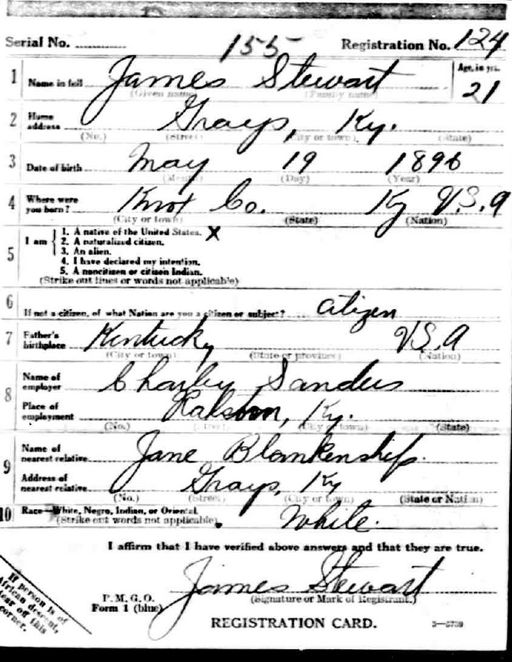 Serial No. 155 Registration No. 124
1 Name in full James Stewart Age, in yrs. 21
(Given name) (Family name)
2 Home address Grays, Ky.
(No.) (Street) (City or town) (State)
3 Date of birth May 19 1896
(Month) (Day) (Year)
4 Where were you born? Knox Co. Ky U.S.A
(City or town) (State) (Nation)
5 I am
1. A native of the United States. X
2. A naturalized citizen.
3. An alien.
4. I have declared my intention.
5. A noncitizen or citizen Indian.
(Strike out lines or words not applicable)
6 If not a citizen, of what Nation are you a citizen or subject? Citizen
7 Father's birthplace Kentucky U.S.A
(City or town) (State or province) (Nation)
8 Name of employer Charley Sanders
Place of employment Ralston, Ky.
(No.) (Street) (City or town) (State)
9 Name of nearest relative Jane Blankenship.
Address of nearest relative Grays, Ky
(No.) (Street) (City or town) (State or Nation)
10 Race—White, Negro, Indian, or Oriental. White.
(Strike out words not applicable)
I affirm that I have verified above answers and that they are true.
James Stewart
P. M. G. O.
Form 1 (blue) (Signature or Mark of Registrant.)
REGISTRATION CARD. 3—5739
If person is of
African descent,
tear off this
corner.